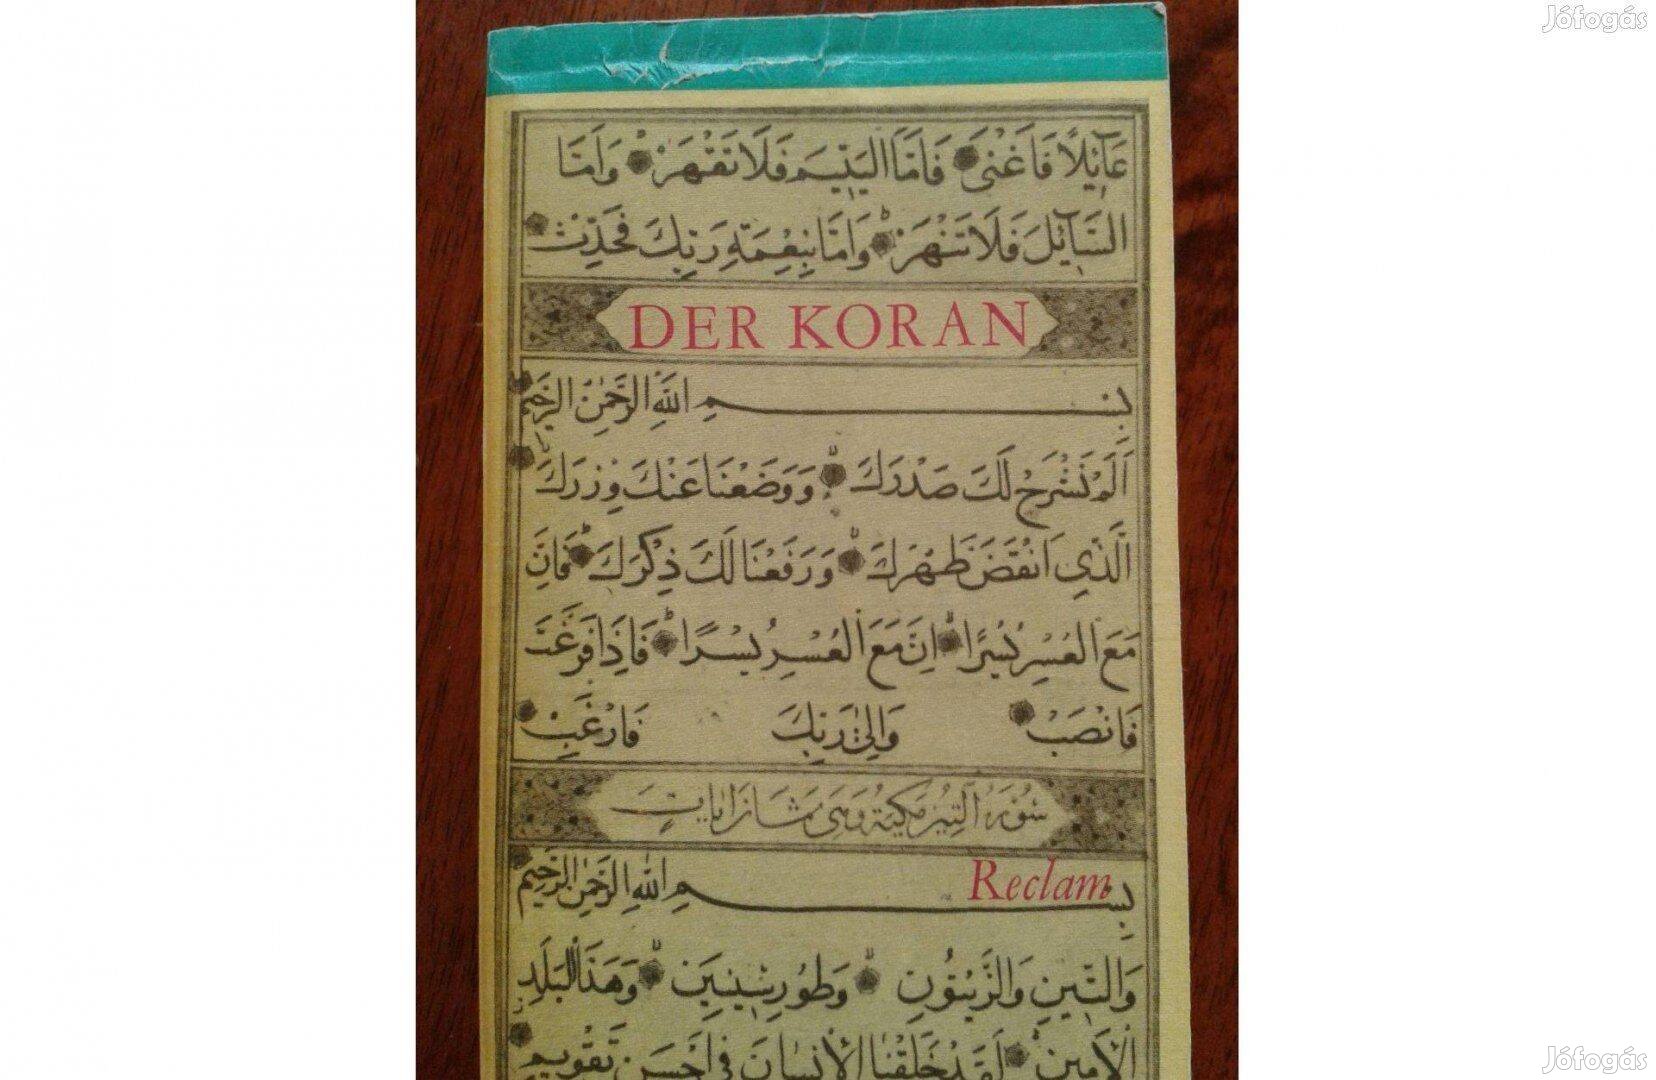 Jófogás
عَآئِلًا فَاَغْنٰى فَاَمَّا الْيَتِيمَ فَلَا تَقْهَرْ وَاَمَّا
السَّآئِلَ فَلَا تَنْهَرْ وَاَمَّا بِنِعْمَةِ رَبِّكَ فَحَدِّثْ
DER KORAN
بِسْمِ اللّٰهِ الرَّحْمٰنِ الرَّحِيمِ
اَلَمْ نَشْرَحْ لَكَ صَدْرَكَ وَوَضَعْنَا عَنْكَ وِزْرَكَ
اَلَّذِي اَنْقَضَ ظَهْرَكَ وَرَفَعْنَا لَكَ ذِكْرَكَ فَاِنَّ
مَعَ الْعُسْرِ يُسْرًا اِنَّ مَعَ الْعُسْرِ يُسْرًا فَاِذَا فَرَغْتَ
فَانْصَبْ وَاِلٰى رَبِّكَ فَارْغَبْ
سُورَةُ التِّينِ مَكِّيَّةٌ وَهِيَ ثَمَانُ اٰيَاتٍ
Reclam
بِسْمِ اللّٰهِ الرَّحْمٰنِ الرَّحِيمِ
وَالتِّينِ وَالزَّيْتُونِ وَطُورِ سِينِينَ وَهٰذَا الْبَلَدِ
الْاَمِينِ لَقَدْ خَلَقْنَا الْاِنْسَانَ فِي اَحْسَنِ تَقْوِيمٍ
Jófogás